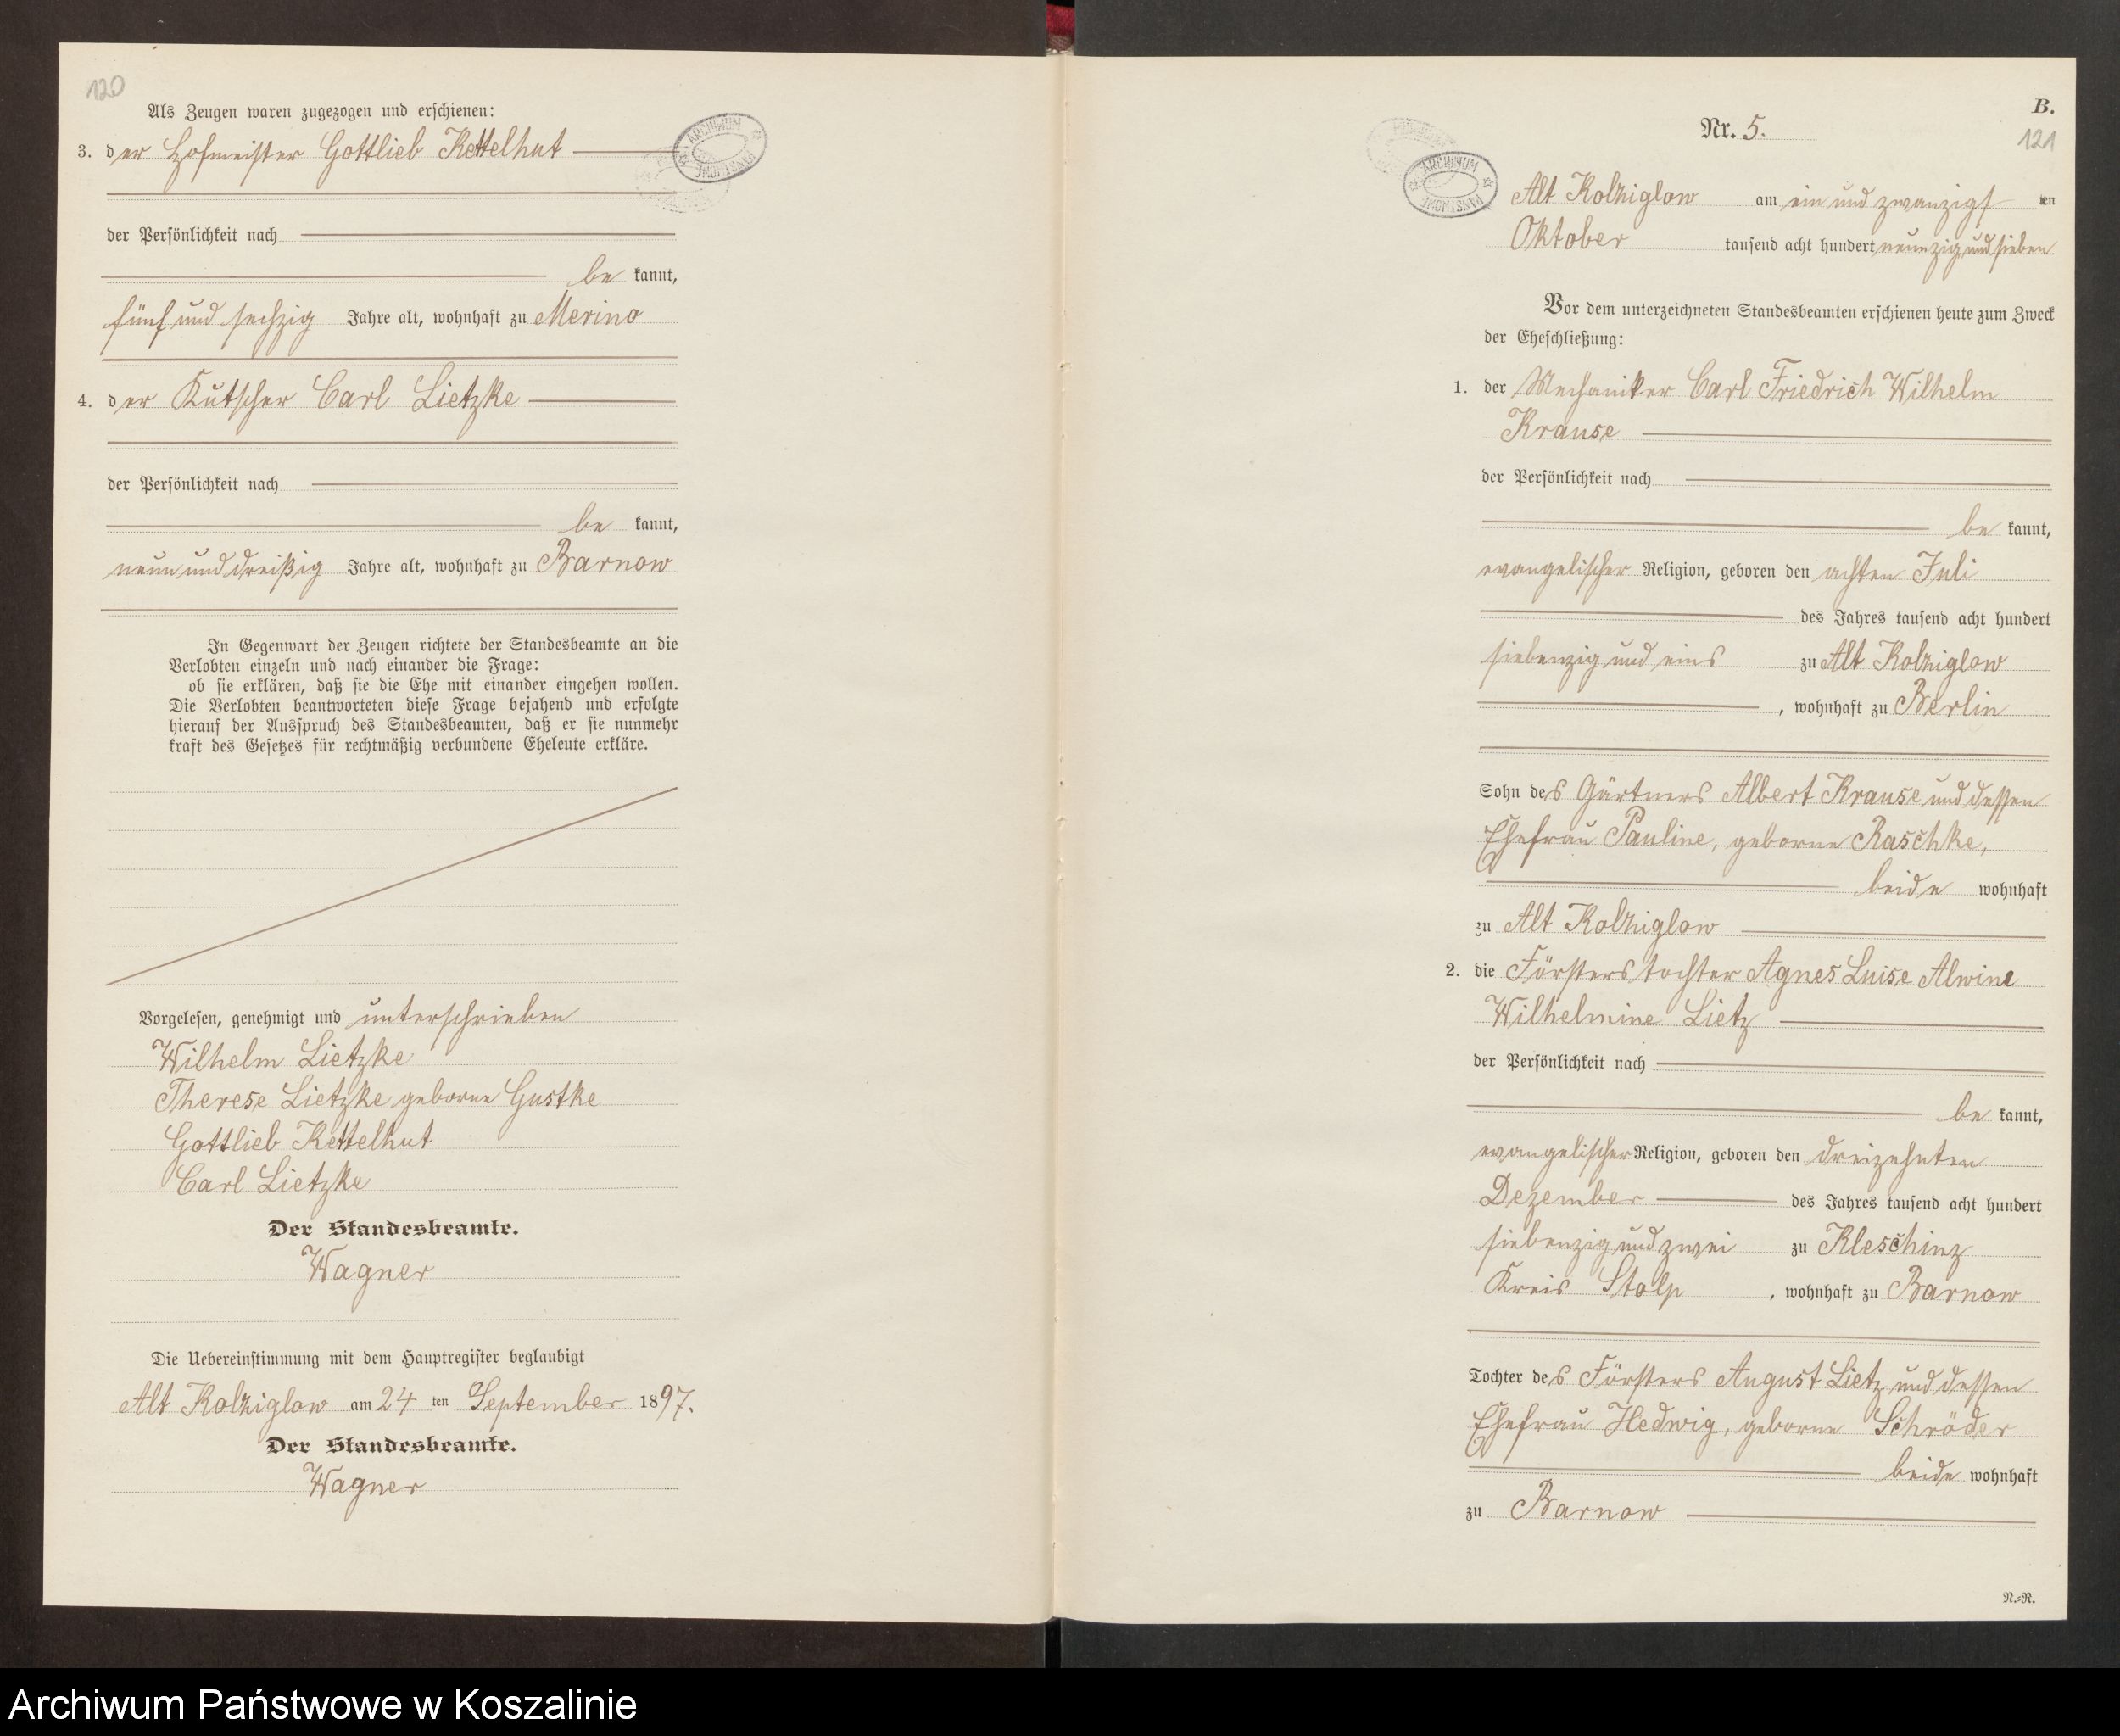 120
Als Zeugen waren zugezogen und erschienen:
3. der Hofmeister Gottlieb Kettelhut
der Persönlichkeit nach
be kannt,
fünf und sechzig Jahre alt, wohnhaft zu Merino
4. der Kutscher Carl Lietzke
der Persönlichkeit nach
be kannt,
neun und dreißig Jahre alt, wohnhaft zu Barnow
In Gegenwart der Zeugen richtete der Standesbeamte an die
Verlobten einzeln und nach einander die Frage:
ob sie erklären, daß sie die Ehe mit einander eingehen wollen.
Die Verlobten beantworteten diese Frage bejahend und erfolgte
hierauf der Ausspruch des Standesbeamten, daß er sie nunmehr
kraft des Gesetzes für rechtmäßig verbundene Eheleute erkläre.
Vorgelesen, genehmigt und unterschrieben
Wilhelm Lietzke
Therese Lietzke geborne Gustke
Gottlieb Kettelhut
Carl Lietzke
Der Standesbeamte.
Wagner
Die Uebereinstimmung mit dem Hauptregister beglaubigt
Alt Kolziglow am 24 ten September 1897.
Der Standesbeamte.
Wagner
ARCHIWUM PAŃSTWOWE
B.
Nr. 5.
121
ARCHIWUM PAŃSTWOWE
Alt Kolziglow am ein und zwanzigs ten
Oktober tausend acht hundert neunzig und sieben
Vor dem unterzeichneten Standesbeamten erschienen heute zum Zweck
der Eheschließung:
1. der Mechaniker Carl Friedrich Wilhelm
Krause
der Persönlichkeit nach
be kannt,
evangelischer Religion, geboren den achten Juli
des Jahres tausend acht hundert
siebenzig und eins zu Alt Kolziglow
, wohnhaft zu Berlin
Sohn des Gärtners Albert Krause und dessen
Ehefrau Pauline, geborne Raschke,
beide wohnhaft
zu Alt Kolziglow
2. die Försterstochter Agnes Luise Alwine
Wilhelmine Lietz
der Persönlichkeit nach
be kannt,
evangelischer Religion, geboren den dreizehnten
Dezember des Jahres tausend acht hundert
siebenzig und zwei zu Kleschinz
Kreis Stolp , wohnhaft zu Barnow
Tochter des Försters August Lietz und dessen
Ehefrau Hedwig, geborne Schröder
beide wohnhaft
zu Barnow
N.-N.
Archiwum Państwowe w Koszalinie